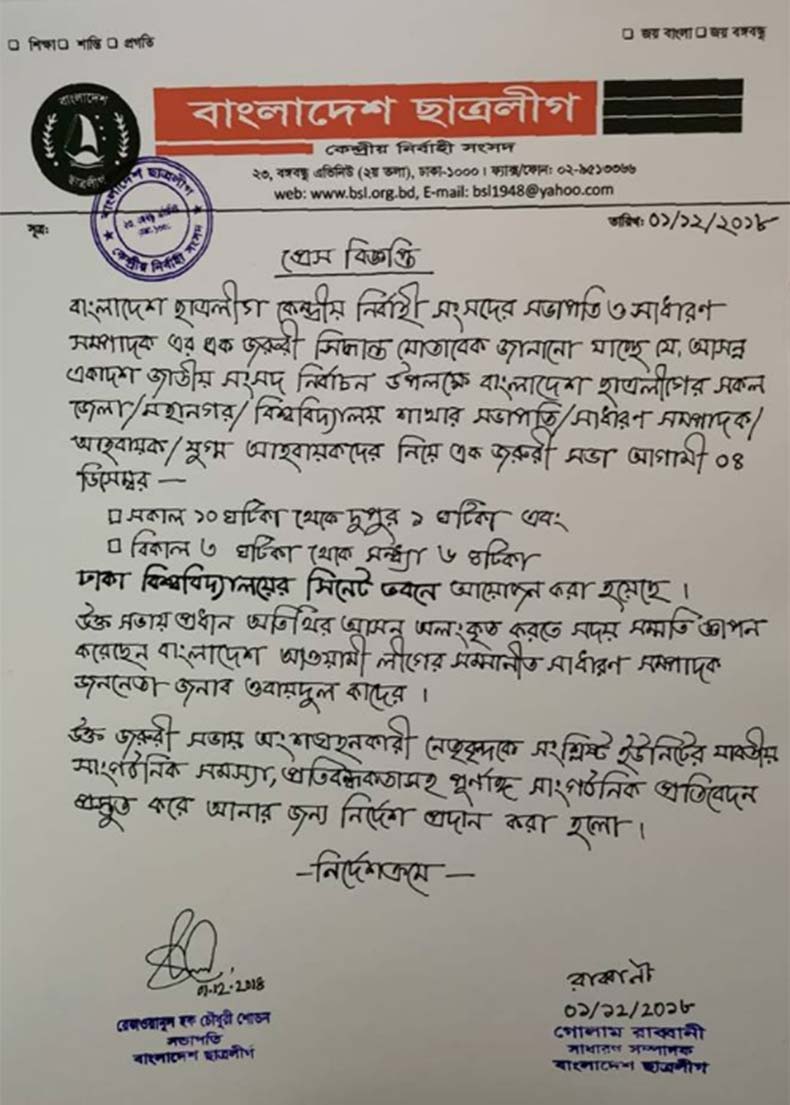 □ শিক্ষা □ শান্তি □ প্রগতি
□ জয় বাংলা □ জয় বঙ্গবন্ধু
বাংলাদেশ
ছাত্রলীগ
বাংলাদেশ ছাত্রলীগ
কেন্দ্রীয় নির্বাহী সংসদ
২৩, বঙ্গবন্ধু এভিনিউ (২য় তলা), ঢাকা-১০০০। ফ্যাক্স/ফোন: ০২-৯৫১৩৩৬৬
web: www.bsl.org.bd, E-mail: bsl1948@yahoo.com
বাংলাদেশ ছাত্রলীগ
কেন্দ্রীয় নির্বাহী সংসদ
সূত্র:
তারিখ: ০১/১২/২০১৮
প্রেস বিজ্ঞপ্তি
বাংলাদেশ ছাত্রলীগ কেন্দ্রীয় নির্বাহী সংসদের সভাপতি ও সাধারণ
সম্পাদক এর এক জরুরী সিদ্ধান্ত মোতাবেক জানানো যাচ্ছে যে, আসন্ন
একাদশ জাতীয় সংসদ নির্বাচন উপলক্ষে বাংলাদেশ ছাত্রলীগের সকল
জেলা/মহানগর/বিশ্ববিদ্যালয় শাখার সভাপতি/সাধারণ সম্পাদক/
আহবায়ক/যুগ্ম আহবায়কদের নিয়ে এক জরুরী সভা আগামী ০৪
ডিসেম্বর —
□ সকাল ১০ ঘটিকা থেকে দুপুর ১ ঘটিকা এবং
□ বিকাল ৩ ঘটিকা থেকে সন্ধ্যা ৬ ঘটিকা
ঢাকা বিশ্ববিদ্যালয়ের সিনেট ভবনে আয়োজন করা হয়েছে।
উক্ত সভায় প্রধান অতিথির আসন অলংকৃত করতে সদয় সম্মতি জ্ঞাপন
করেছেন বাংলাদেশ আওয়ামী লীগের সম্মানীত সাধারণ সম্পাদক
জননেতা জনাব ওবায়দুল কাদের।
উক্ত জরুরী সভায় অংশগ্রহনকারী নেতৃবৃন্দকে সংশ্লিষ্ট ইউনিটের যাবতীয়
সাংগঠনিক সমস্যা, প্রতিবন্ধকতাসহ পূর্ণাঙ্গ সাংগঠনিক প্রতিবেদন
প্রস্তুত করে আনার জন্য নির্দেশ প্রদান করা হলো।
—নির্দেশক্রমে—
01.12.2018
রেজওয়ানুল হক চৌধুরী শোভন
সভাপতি
বাংলাদেশ ছাত্রলীগ
রাব্বানী
০১/১২/২০১৮
গোলাম রাব্বানী
সাধারণ সম্পাদক
বাংলাদেশ ছাত্রলীগ